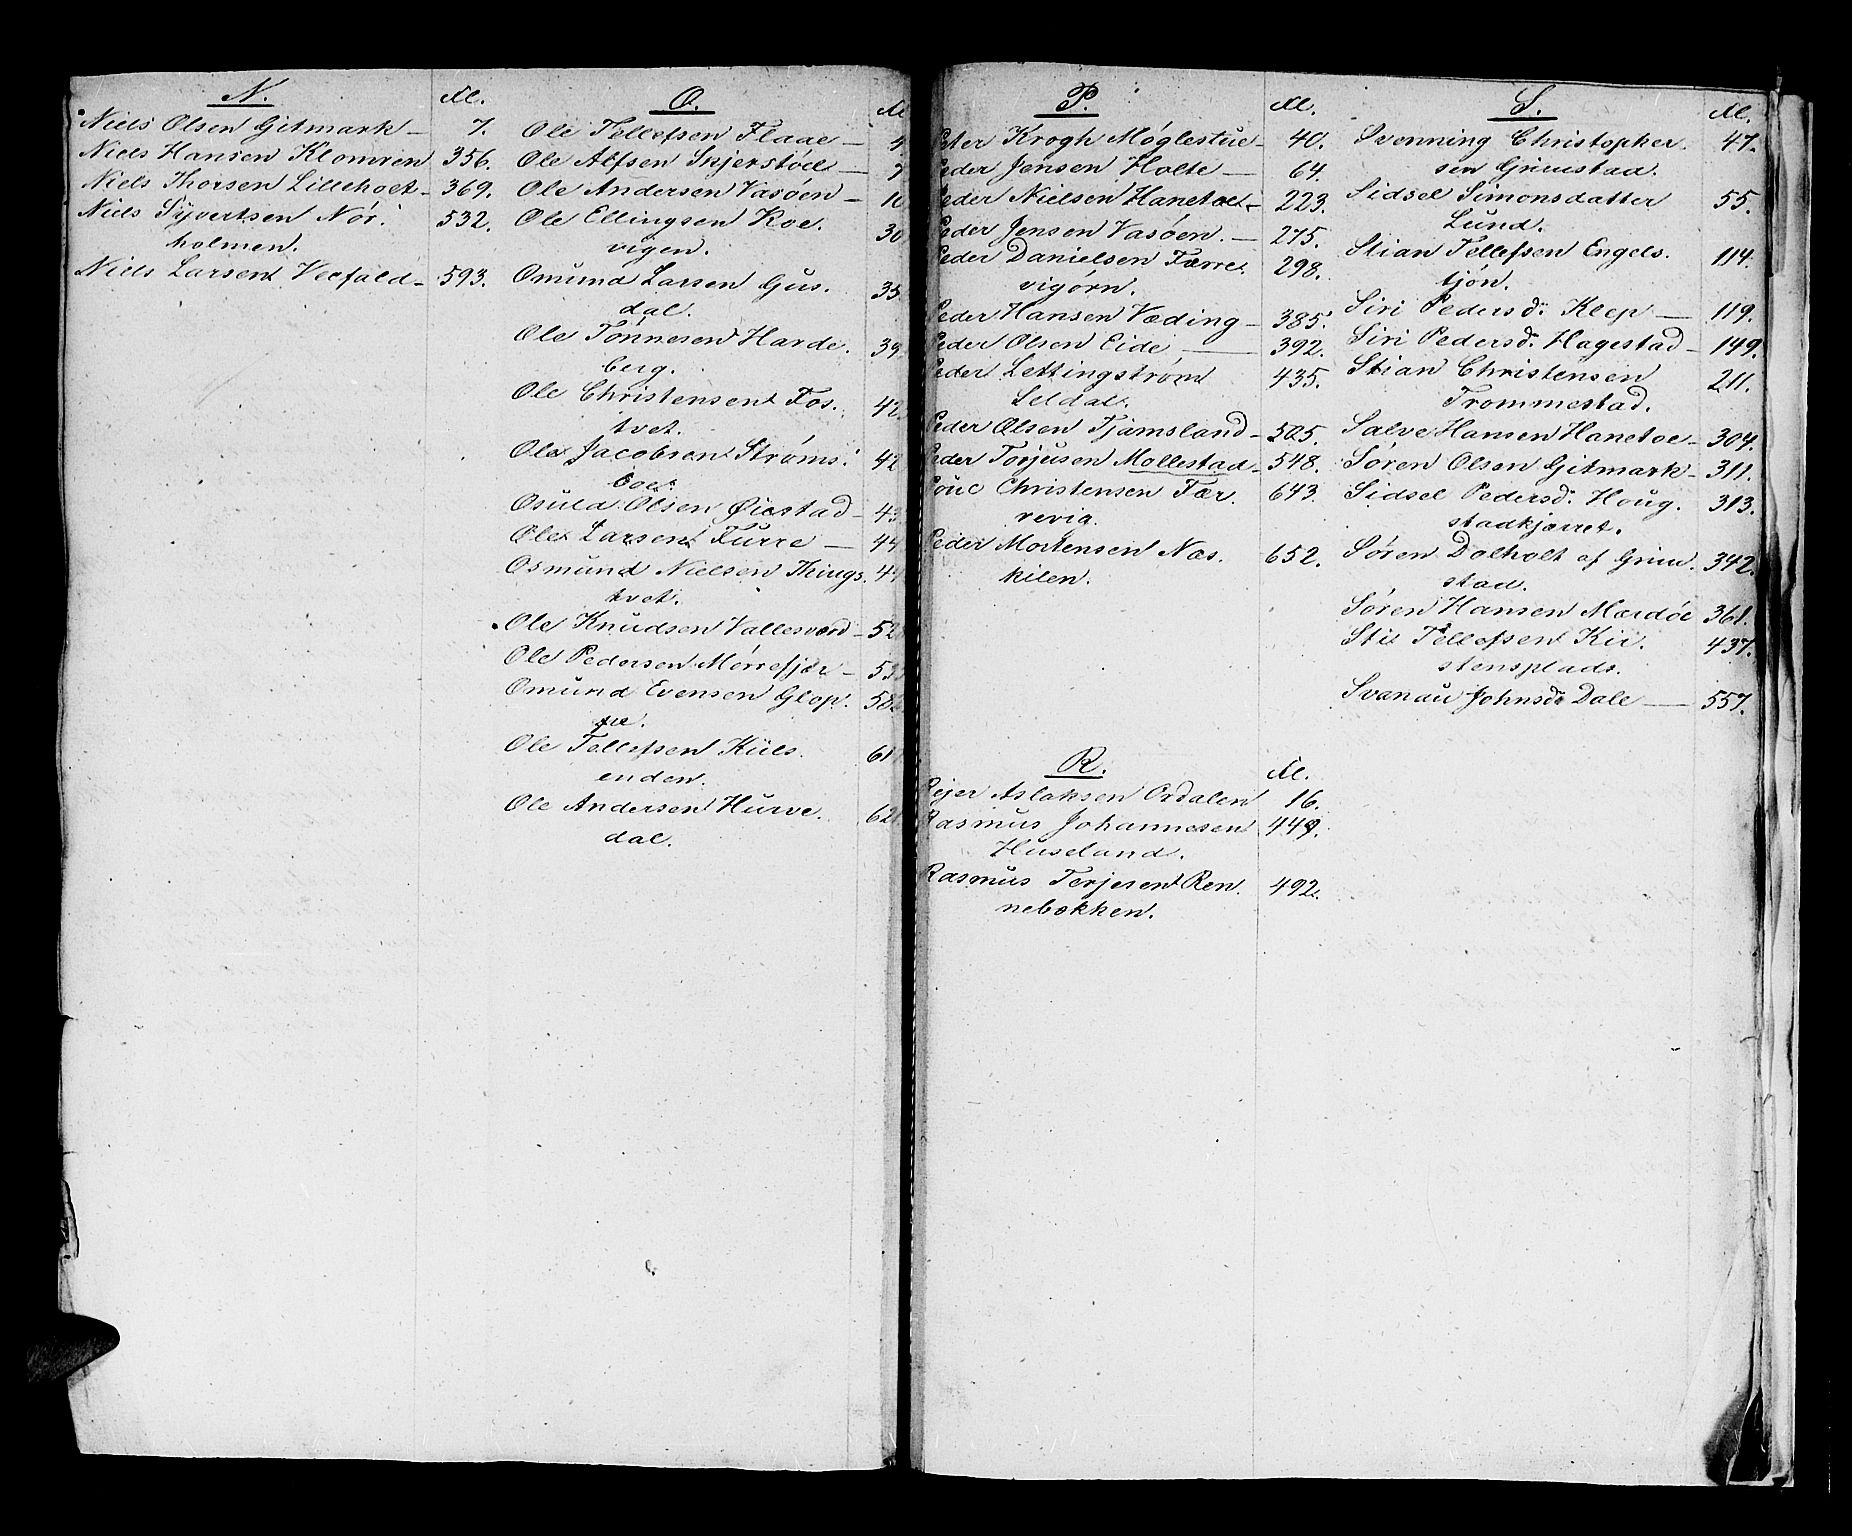 N.
Niels Olsen Gitmark — 7.
Niels Hansen Klomren 356.
Niels Thorsen Lilleholt — 369.
Niels Syvertsen Nør- 532.
holmen.
Niels Larsen Veefald — 593.
O.
Ole Tellefsen Flaae —
Ole Alfsen Skjerstøel —
Ole Andersen Vasøen —
Ole Ellingsen Koe- 30
vigen.
Omund Larsen Gus- 35
dal.
Ole Tønnesen Harde- 39
berg.
Ole Christensen Fos- 42
tvet.
Ole Jacobsen Strøms- 42
boe.
Osuld Olsen Øiestad — 43
Ole Larsen Furre — 44
Osmund Nielsen Things- 44
tvet.
Ole Knudsen Vallesværd — 52
Ole Pedersen Mørrefjær — 53
Omund Evensen Glop- 58
pe.
Ole Tellefsen Kiils- 61
enden.
Ole Andersen Hurve- 62
dal.
P.
Peter Krogh Møglestue — 40.
Peder Jensen Holte — 64.
Peder Nielsen Hanetoe — 223.
Peder Jensen Vasøen. — 275.
Peder Danielsen Færre- 298.
vigørn.
Peder Hansen Væding — 385.
Peder Olsen Eide, — 392.
Peder Lettingstrøm 435.
Seldal.
Peder Olsen Tjamsland — 525.
Peder Torjusen Mollestad — 548.
Poul Christensen Fær- 643.
revig.
Peder Mortensen Næs- 652.
kilen.
R.
Rejer Aslaksen Ordalen 16.
Rasmus Johannesen 449.
Huseland.
Rasmus Terjesen Ren- 492.
nebækken.
S.
Svenning Christopher- 47.
sen Grimstad.
Sidsel Simonsdatter 55.
Lund.
Stian Tellefsen Engels- 114.
tjøn.
Siri Pedersd: Klep — 119.
Siri Pedersd: Hagestad — 149.
Stian Christensen 211.
Trommestad.
Salve Hansen Hanetoe — 304.
Søren Olsen Gitmark — 311.
Sidsel Pedersd: Houg- 313.
stadkjærret.
Søren Dalholt af Grim- 342.
stad.
Søren Hansen Mærdøe 361.
Sti Tellefsen Kir- 437.
stensplads.
Svanau Johnsd: Dale — 557.